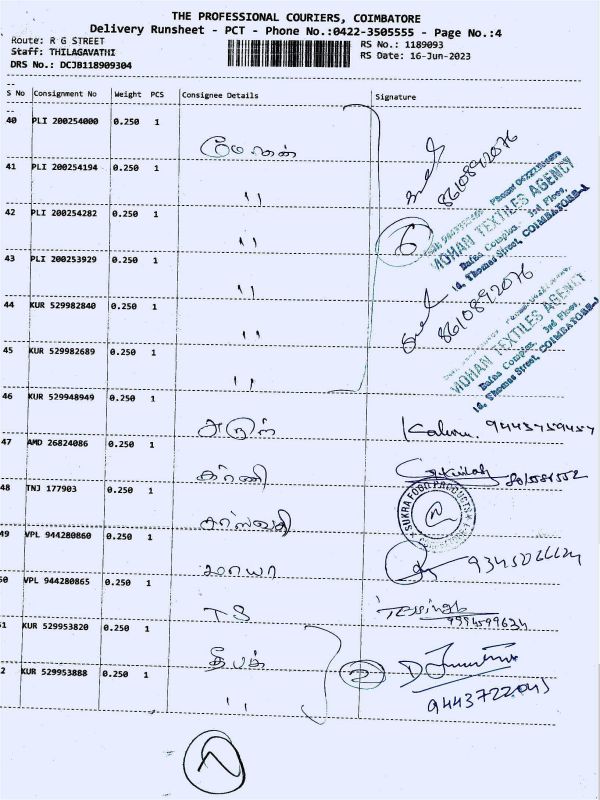 THE PROFESSIONAL COURIERS, COIMBATORE
Delivery Runsheet - PCT - Phone No.:0422-3505555 - Page No.:4
Route: R G STREET
RS No.: 1189093
Staff: THILAGAVATHI
RS Date: 16-Jun-2023
DRS No.: DCJB118909304
S No Consignment No Weight PCS Consignee Details Signature
40 PLI 200254000 0.250 1
மோகன்
8610892076
41 PLI 200254194 0.250 1
"
42 PLI 200254282 0.250 1
"
6
MOHAN TEXTILES AGENCY
Bafna Complex, 3rd Floor,
16, Thomas Street, COIMBATORE-1
43 PLI 200253929 0.250 1
"
8610892076
44 KUR 529982840 0.250 1
"
MOHAN TEXTILES AGENCY
Bafna Complex, 3rd Floor,
16, Thomas Street, COIMBATORE-1
45 KUR 529982689 0.250 1
"
46 KUR 529948949 0.250 1
அருள்
47 AMD 26824086 0.250 1
48 TNJ 177903 0.250 1
SUKRA FOOD PRODUCTS
49 VPL 944280860 0.250 1
மாயா
50 VPL 944280865 0.250 1
TS
51 KUR 529953820 0.250 1
தீபக்
52 KUR 529953888 0.250 1
"
2
9443722045